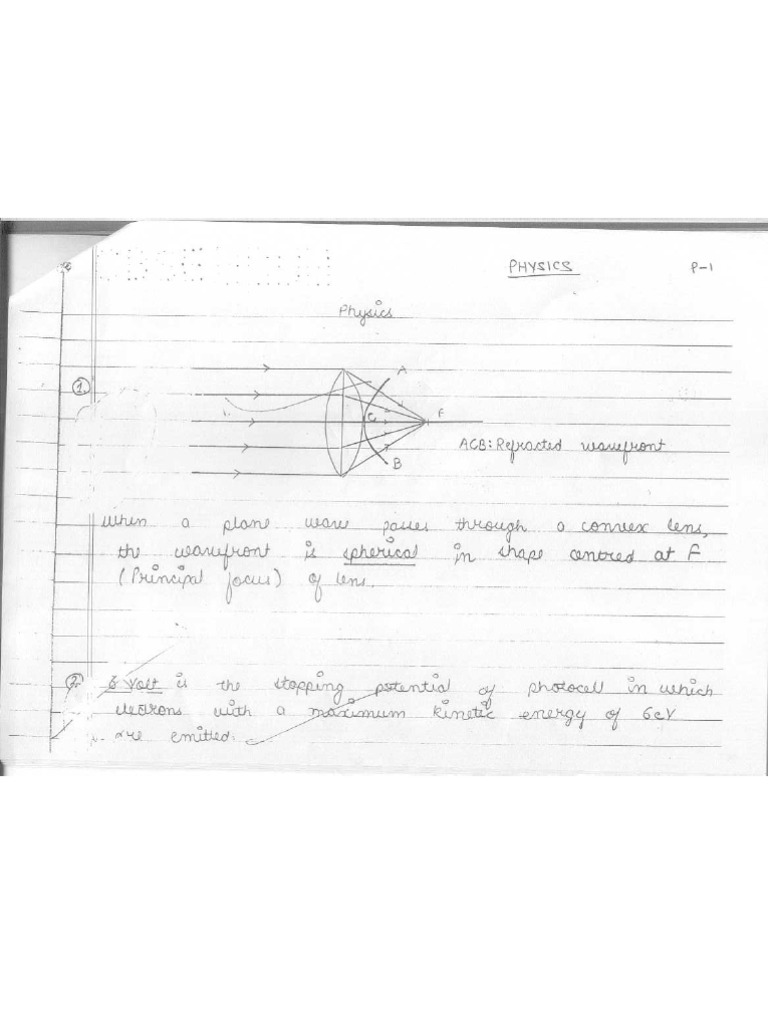 PHYSICS P-1
Physics
1.
A
C F
ACB: Refracted wavefront
B
when a plane wave passes through a convex lens,
the wavefront is spherical in shape centred at F
(Principal focus) of lens.
2. 6 Volt is the stopping potential of photocell in which
electrons with a maximum kinetic energy of 6eV
are emitted.